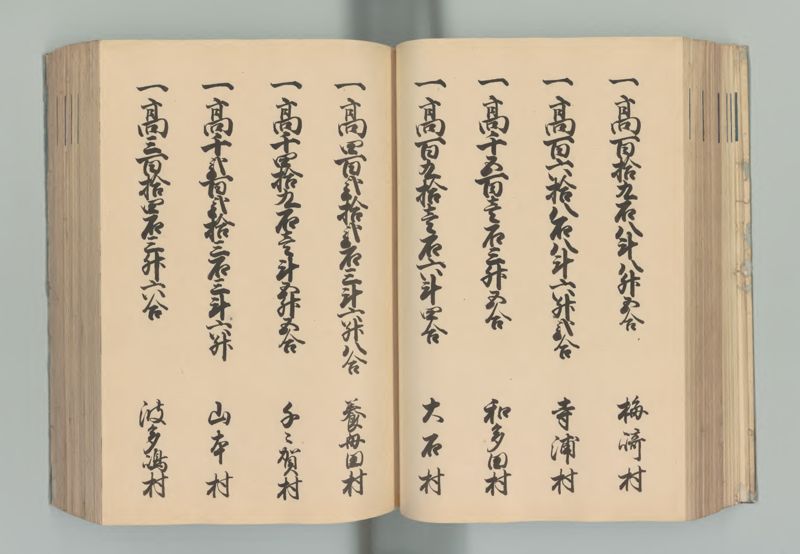 一高百拾九石八斗八升五合　梅崎村
一高百六拾八石八斗六升弐合　寺浦村
一高千五百壱石三升五合　和多田村
一高百九拾壱石六斗四合　大石村
一高四百弐拾弐石三斗六升八合　養母田村
一高千四拾九石壱斗五升五合　千々賀村
一高千弐百弐拾三石三斗六升　山本村
一高三百拾四石三升六合　波多嶋村